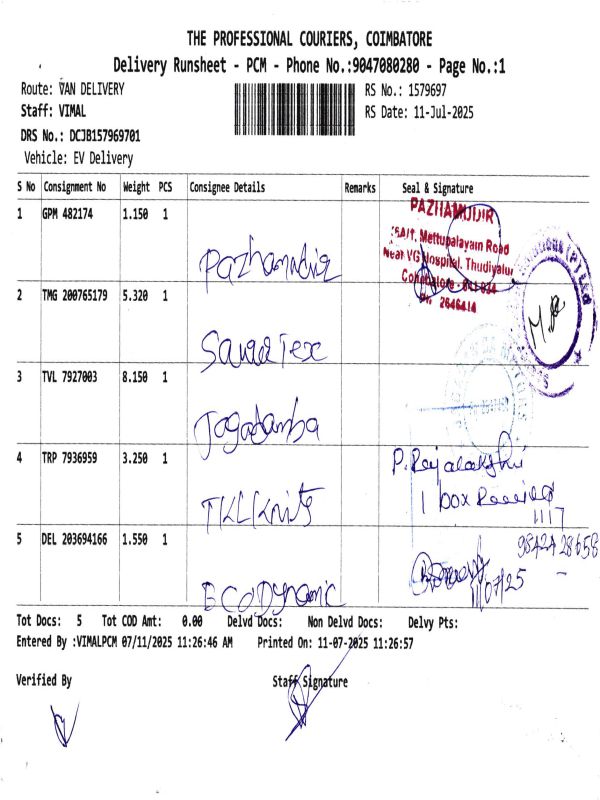 THE PROFESSIONAL COURIERS, COIMBATORE
Delivery Runsheet - PCM - Phone No.:9047080280 - Page No.:1
Route: VAN DELIVERY
RS No.: 1579697
Staff: VIMAL
RS Date: 11-Jul-2025
DRS No.: DCJB157969701
Vehicle: EV Delivery
S No Consignment No Weight PCS Consignee Details Remarks Seal & Signature
1 GPM 482174 1.150 1
PAZHAMUDIR
Mettupalayam Road
Near VG Hospital, Thudiyalur
Coimbatore - 641 034
Ph: 2646414
Pazhamudir
2 TMG 200765179 5.320 1
M.
Tex
3 TVL 7927003 8.150 1
Jagadamba
4 TRP 7936959 3.250 1
P. Rajalakshmi
1 box Received
11/7
TKL Knits
5 DEL 203694166 1.550 1
98424 28658
11/07/25
ECO Dynamic
Tot Docs: 5 Tot COD Amt: 0.00 Delvd Docs: Non Delvd Docs: Delvy Pts:
Entered By :VIMALPCM 07/11/2025 11:26:46 AM Printed On: 11-07-2025 11:26:57
Verified By Staff Signature